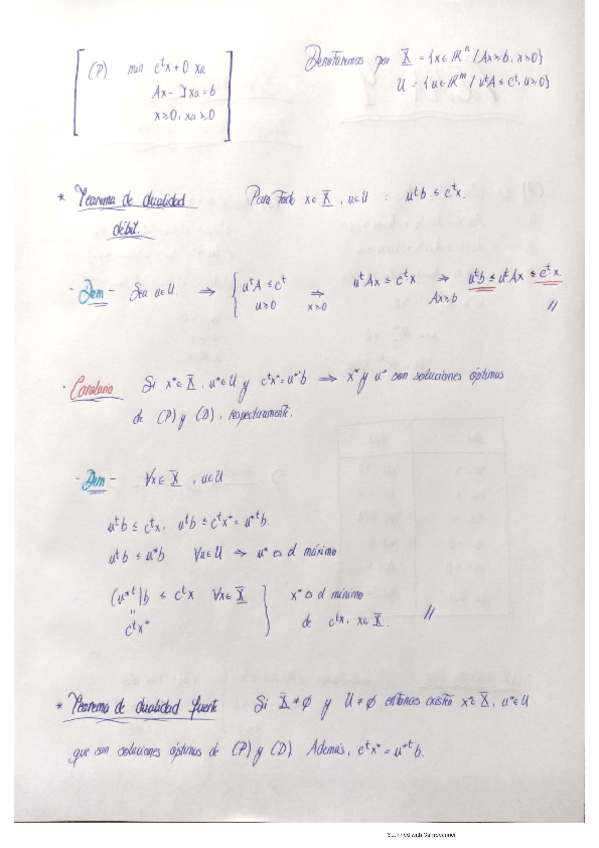 (P) min cᵗx + 0 xa
Ax - Ixa = b
x ≥ 0, xa ≥ 0
Denotaremos por X = {x ∈ ℝⁿ / Ax ≥ b, x ≥ 0}
U = {u ∈ ℝᵐ / uᵗA ≤ cᵗ, u ≥ 0}
* Teorema de dualidad débil. Para todo x ∈ X, u ∈ U : uᵗb ≤ cᵗx.
- Dem - Sea u ∈ U ⇒ { uᵗA ≤ cᵗ, u ≥ 0 ⇒ (x ≥ 0) uᵗAx ≤ cᵗx ⇒ (Ax ≥ b) uᵗb ≤ uᵗAx ≤ cᵗx. //
· Corolario Si x* ∈ X, u* ∈ U y cᵗx* = u*ᵗb ⇒ x* y u* son soluciones óptimas
de (P) y (D), respectivamente.
- Dem - ∀x ∈ X, u ∈ U
uᵗb ≤ cᵗx, uᵗb ≤ cᵗx* = u*ᵗb.
uᵗb ≤ u*b ∀u ∈ U ⇒ u* es el máximo
(u*ᵗ)b ≤ cᵗx ∀x ∈ X } x* es el mínimo
=
cᵗx* de cᵗx, x ∈ X. //
* Teorema de dualidad fuerte Si X ≠ ∅ y U ≠ ∅ entonces existen x* ∈ X, u* ∈ U
que son soluciones óptimas de (P) y (D). Además, cᵗx* = u*ᵗb.
Scanned with CamScanner